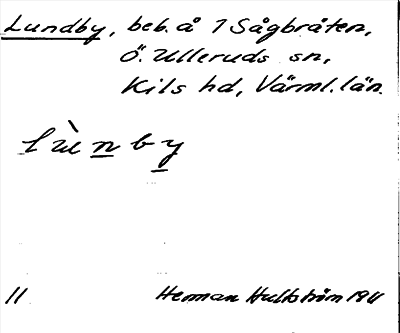 Lundby, beb. å 1 Sågbråten,
Ö. Ulleruds sn,
Kils hd, Värml. län.
lùnby
11 Herman Hultström 1911